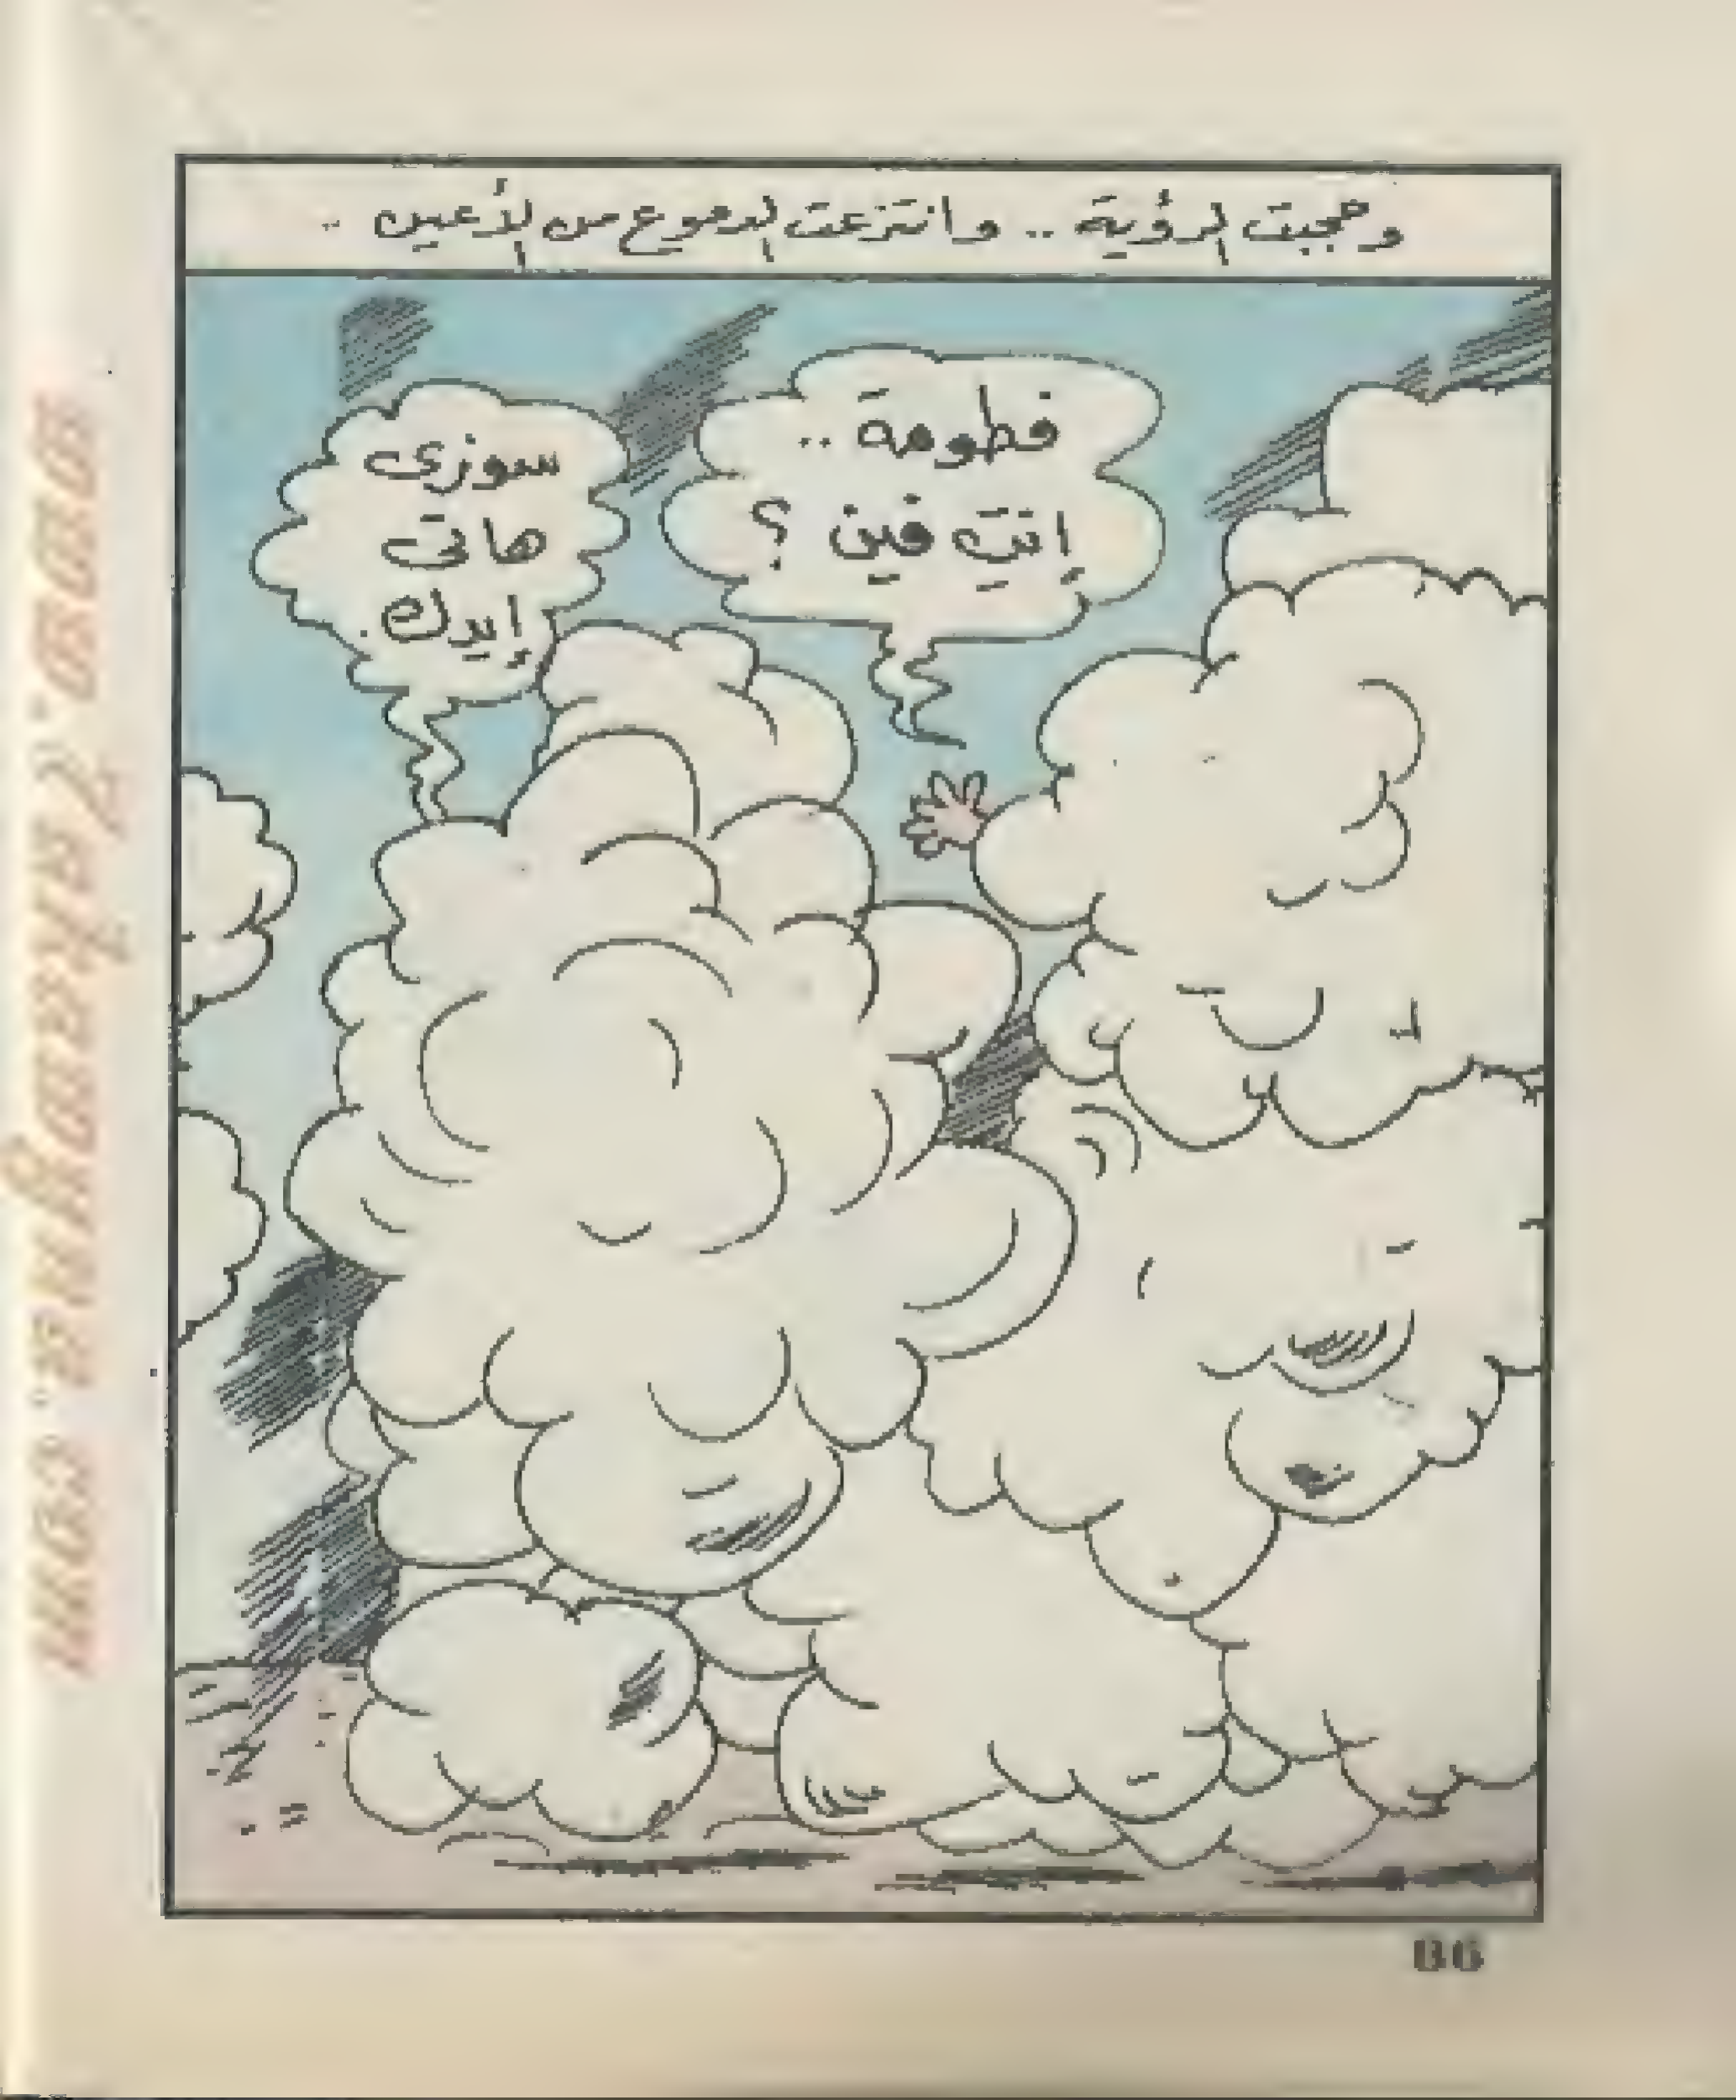 وحجبت الرؤية .. وانتزعت الدموع من الأعين ..
فطومة ..
إنتِ فين ؟
سوزى
هاتى
إيدك.
86